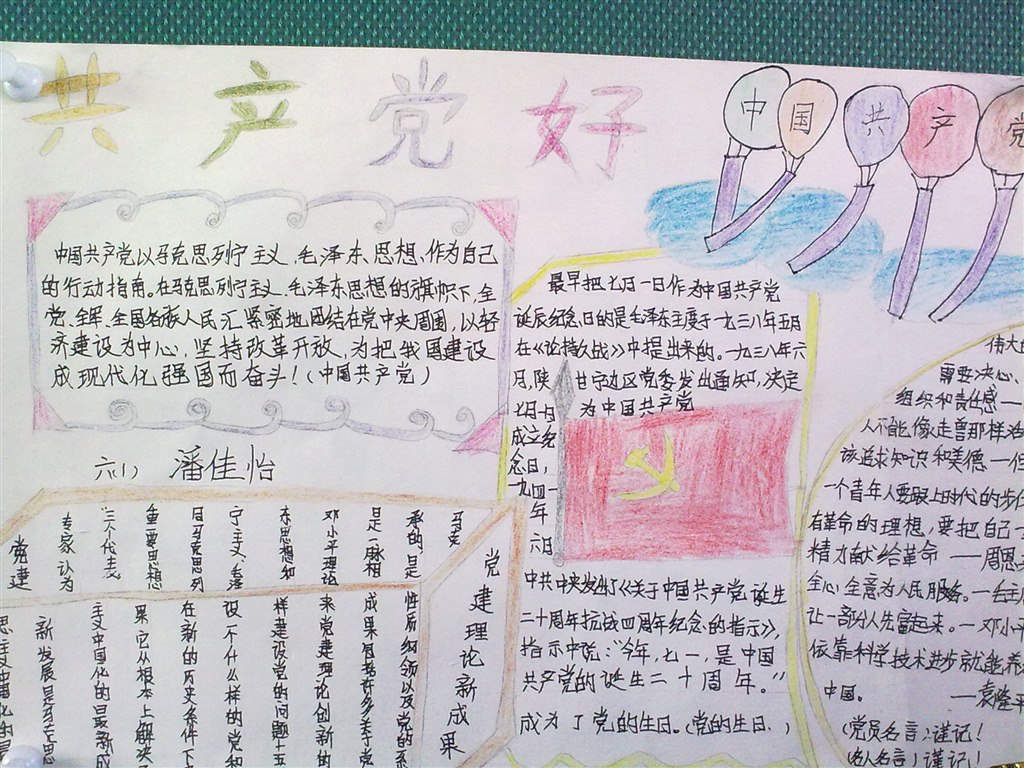 共产党好
中国共产党
中国共产党以马克思列宁主义、毛泽东思想、作为自己
的行动指南。在马克思列宁主义、毛泽东思想的旗帜下,全
党、全军、全国各族人民汇紧密地团结在党中央周围,以经
济建设为中心,坚持改革开放,为把我国建设
成现代化强国而奋斗!(中国共产党)
六(1) 潘佳怡
最早把七月一日作为中国共产党
诞辰纪念日的是毛泽东主度于一九三八年五月
在《论持久战》中提出来的。一九三八年六
月,陕甘宁边区党委发出通知,决定
七月一日为中国共产党
成立纪
念日,
一九四一
年
六日
中共中央发出了《关于中国共产党诞生
二十周年抗战四周年纪念的指示》,
指示中说:“今年,七一,是中国
共产党的诞生二十周年。”
成为了党的生日。(党的生日.)
党建理论新成果
马克
承的,是
是一脉相
邓小平理论
东思想和
宁主义、毛泽
启马克思列
重要思想
“三个代表”
专家认为
党建
性质纲领以及党的
成果包括许多关于党
来党建理论创新的
样建设党的问题十五
设一个什么样的党和
在新的历史条件下
果它从根本上解决
主义中国化的最新成
新发展是马克思
思主义中国化的最
伟大的
需要决心、
组织和责任感——
人不能像走兽那样活
该追求知识和美德—但
一个青年人要跟上时代的步伐
有革命的理想,要把自己一
精力献给革命 ——周恩
全心全意为人民服务。—毛主
让一部分人先富起来。—邓小平
依靠科学技术进步就能养
中国。 ——袁隆平
(党员名言)谨记!
(名人名言)谨记!